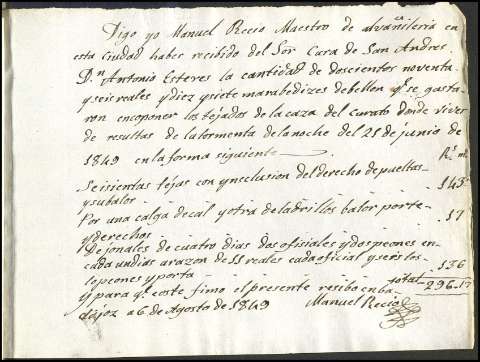 Digo yo Manuel Recio Maestro de alvañileria en
esta Ciudad haber recibido del Sor Cura de San Andres
Dn Antonio Esteres la cantidad de doscientos noventa
y seis reales y diez y siete marabedizes de bellon qe. se gasta-
ron en coponer los tejados de la caza del curato donde vive
de resultas de la tormenta de la noche del 21 de junio de
1849 en la forma siguiente
Rs. ms.
Seisientas tejas con ynclusion del derecho de pueltas
y su balor - - - 143
Por una calga de cal y otra de ladrillos balor porte
y derechos - - - 17
De jonales de cuatro dias dos ofisiales y dos peones en
cada un dias a razon de 11 reales cada oficial y seis los
lo peones y porta - - - 136
total 296.17
y para qe. coste fimo el presente resibo en ba-
dajoz a 6 de Agosto de 1849
Manuel Recio